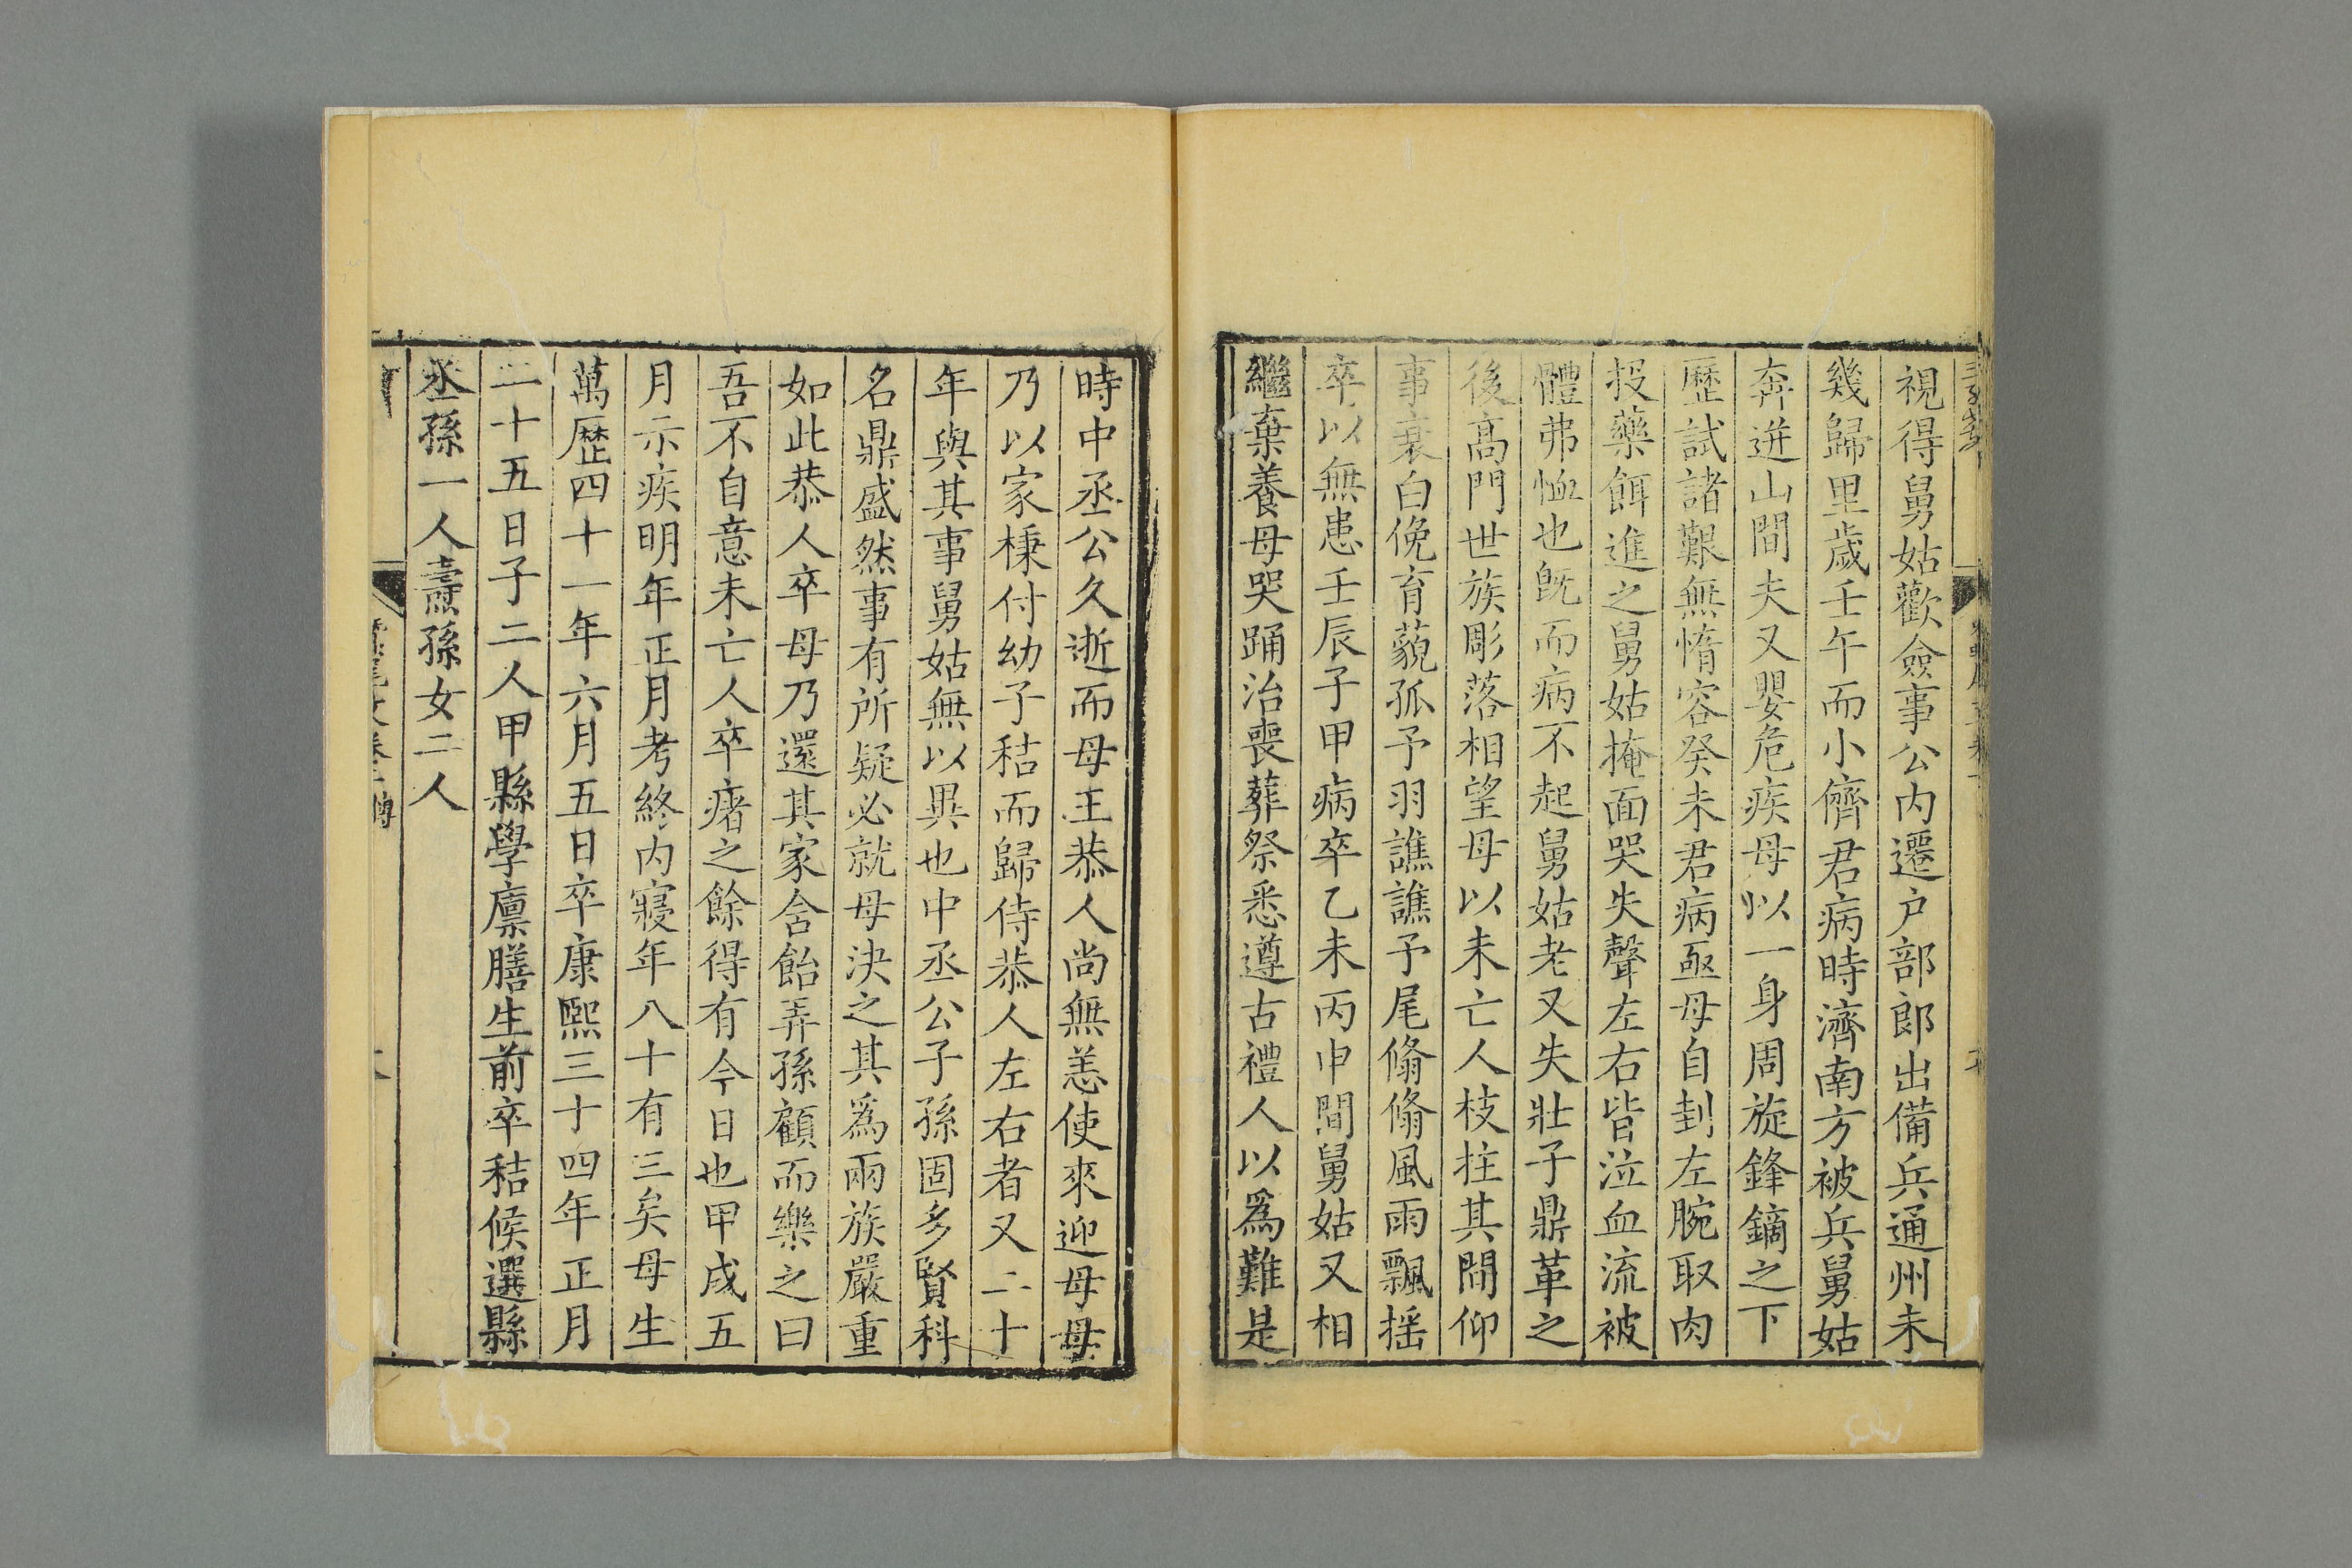 視得舅姑歡僉事公内遷户部郎出備兵通州未
幾歸里歲壬午而小儕君病時濟南方被兵舅姑
奔迸山間夫又嬰危疾母以一身周旋鋒鏑之下
歷試諸艱無惰容癸未君病亟母自刲左腕取肉
投藥餌進之舅姑掩面哭失聲左右皆泣血流被
體弗恤也旣而病不起舅姑老又失壯子鼎革之
後髙門世族彫落相望母以未亡人枝拄其間仰
事衰白俛育藐孤予羽譙譙予尾翛翛風雨飄揺
卒以無患壬辰子甲病卒乙未丙申間舅姑又相
繼棄養母哭踊治喪葬祭悉遵古禮人以爲難是
時中丞公久逝而母王恭人尚無恙使來迎母母
乃以家秉付幼子秸而歸侍恭人左右者又二十
年與其事舅姑無以異也中丞公子孫固多賢科
名鼎盛然事有所疑必就母決之其爲兩族嚴重
如此恭人卒母乃還其家含飴弄孫顧而樂之曰
吾不自意未亡人卒瘏之餘得有今日也甲戌五
月示疾明年正月考終内寢年八十有三矣母生
萬歷四十一年六月五日卒康熙三十四年正月
二十五日子二人甲縣學廪膳生前卒秸候選縣
丞孫一人燾孫女二人